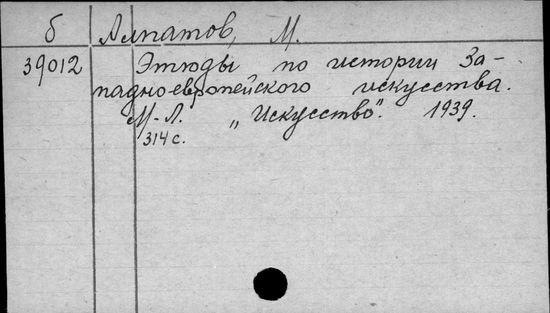 б Алпатов, М.
39012 Этюды по истории За-
падноевропейского искусства.
М-Л. „Искусство". 1939.
314 с.